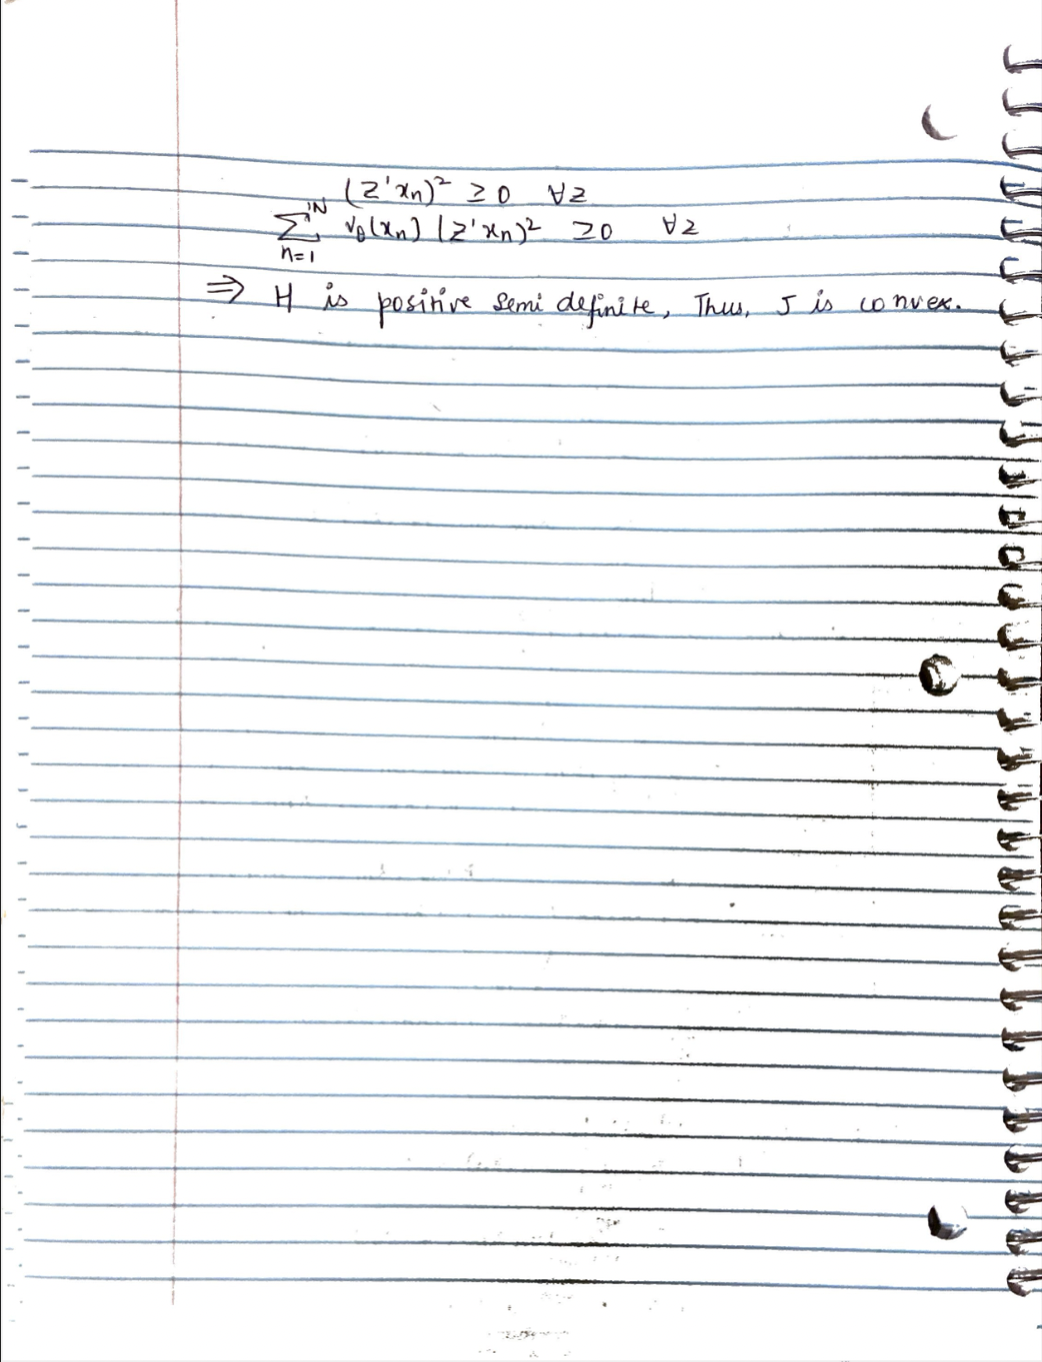 (z'xn)² ≥ 0 ∀z
N
∑ vθ(xn) (z'xn)² ≥0 ∀z
n=1
⇒ H is positive semi definite, Thus, J is convex.